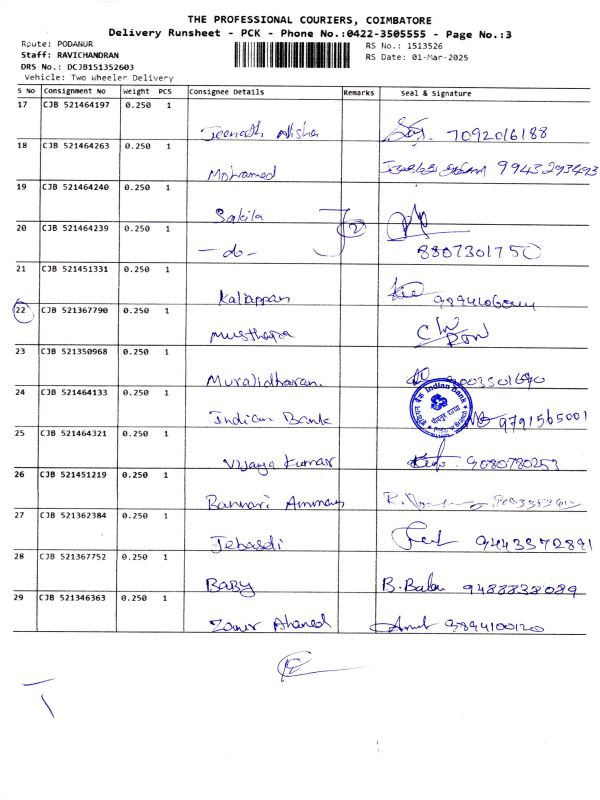 THE PROFESSIONAL COURIERS, COIMBATORE
Delivery Runsheet - PCK - Phone No.:0422-3505555 - Page No.:3
Route: PODANUR
RS No.: 1513526
Staff: RAVICHANDRAN
RS Date: 01-Mar-2025
DRS No.: DCJB151352603
Vehicle: Two Wheeler Delivery
S No Consignment No Weight PCS Consignee Details Remarks Seal & Signature
17 CJB 521464197 0.250 1
Nisha 7092016188
18 CJB 521464263 0.250 1
Mohamed 9943293493
19 CJB 521464240 0.250 1
Sakila 2
20 CJB 521464239 0.250 1
-do- 8807301750
21 CJB 521451331 0.250 1
Kaliappan
22 CJB 521367790 0.250 1
Musthafa
23 CJB 521350968 0.250 1
Muralidharan
24 CJB 521464133 0.250 1
Indian Bank 9791565001
Indian Bank
25 CJB 521464321 0.250 1
Vijaya Kumar 9080780253
26 CJB 521451219 0.250 1
Bannari Amman
27 CJB 521362384 0.250 1
9443372891
28 CJB 521367752 0.250 1
BABY B. 9488838089
29 CJB 521346363 0.250 1
Ahamed 9894100120